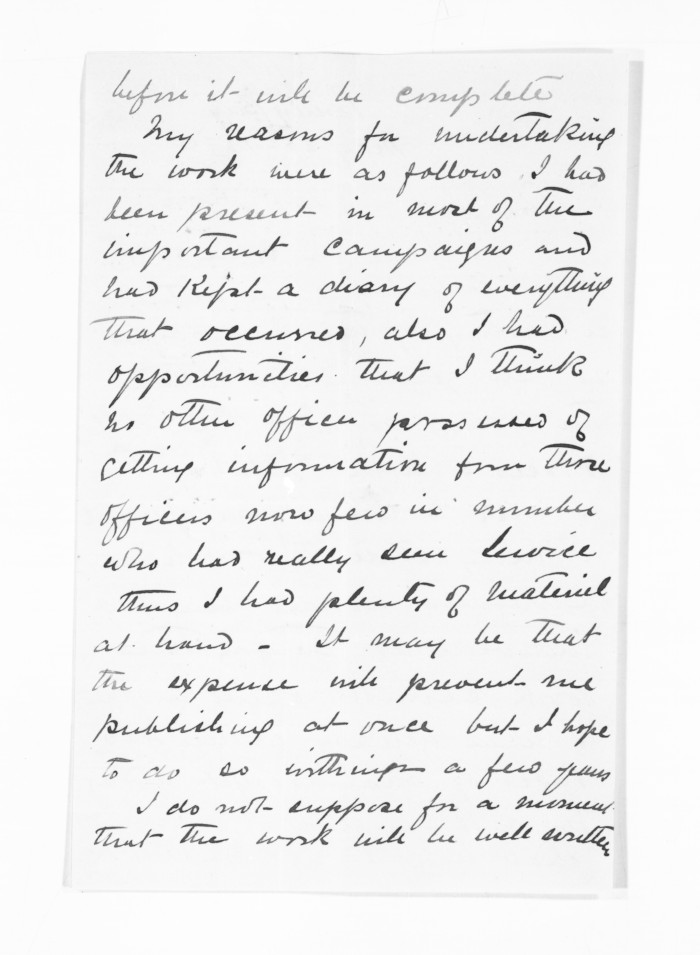 before it will be complete
My reasons for undertaking
the work were as follows I had
been present in most of the
important campaigns and
had kept a diary of everything
that occurred, also I had
opportunities that I think
no other officer possessed of
getting information from those
officers now few in number
who had really seen service
thus I had plenty of material
at hand - It may be that
the expense will prevent me
publishing at once but I hope
to do so withing a few years
I do not suppose for a moment
that the work will be well written